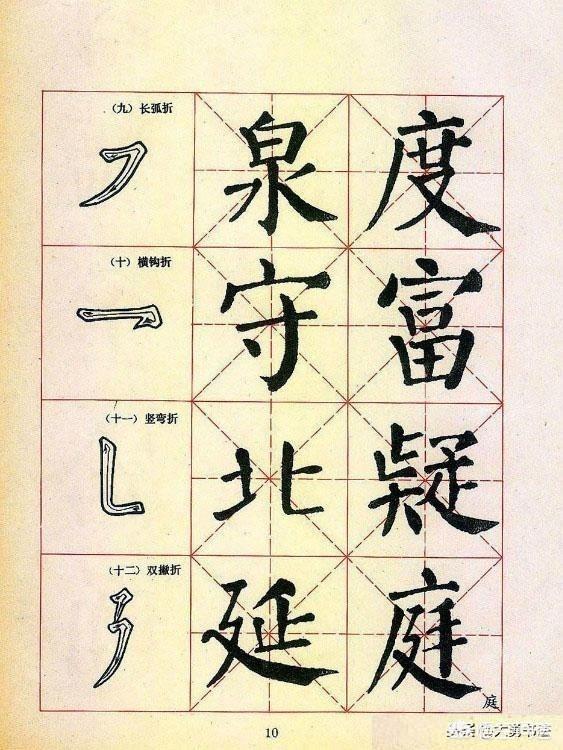 （九）长弧折
泉 度
（十）横钩折
守 富
（十一）竖弯折
北 疑
（十二）双撇折
延 庭
庭
10
头条@大勇书法